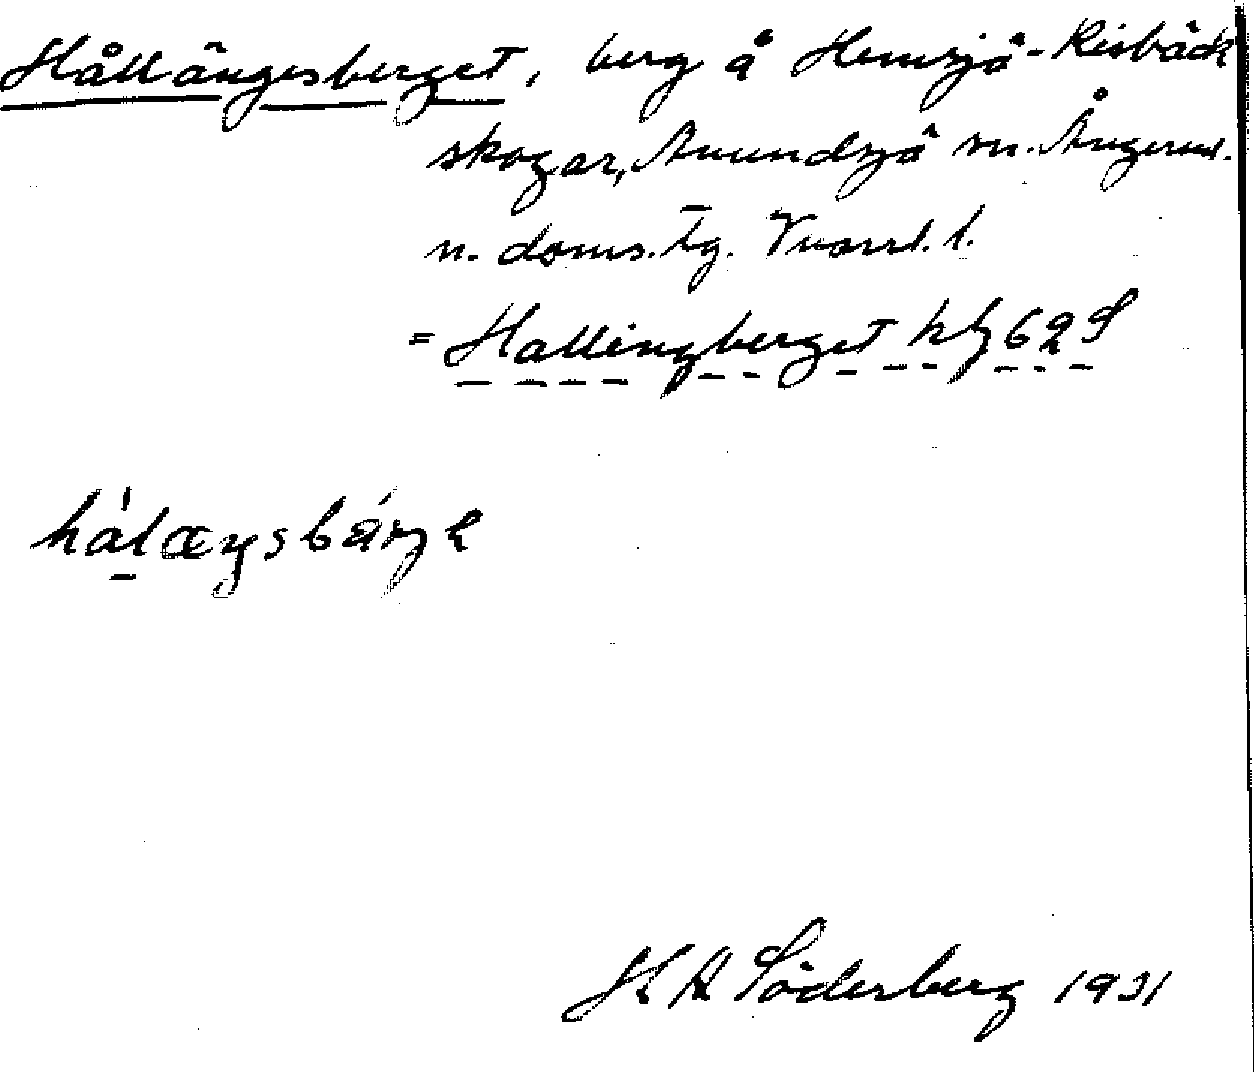 Hållängesberget, berg å Hemsjö-Risbäck
skogar, Anundsjö sn. Ångerml.
n. doms. tg. Västl. l.
= Hallingberget hfg 62 S
hålæŋsbärʒe
K A Söderberg 1931